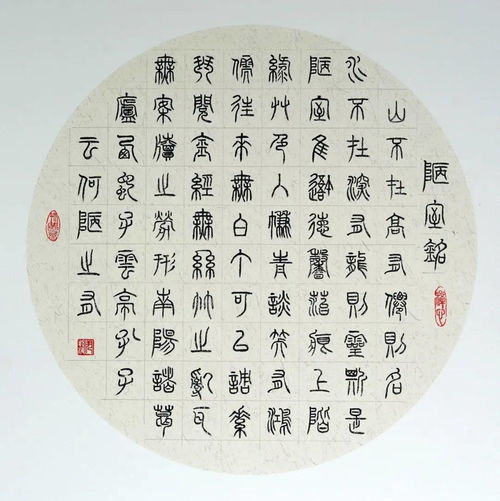 陋室銘
山不在高有僊則名
水不在深有龍則靈斯是
陋室隹吾德馨菭痕上階
綠艸色入簾青談笑有鴻
儒往來無白丁可以調素
琴閱金經無絲竹之亂耳
無案牘之勞形南陽諸葛
廬西蜀子雲亭孔子
云何陋之有